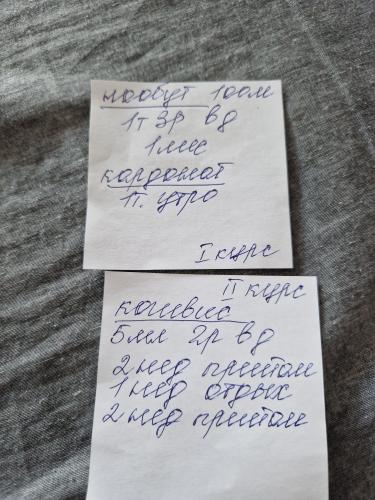 нообут 100м
1т 3р вд
1мис
кардонат
1т. утро
I курс
II курс
когвис
5мл 2р вд
2 нед прием
1 нед отдых
2 нед прием